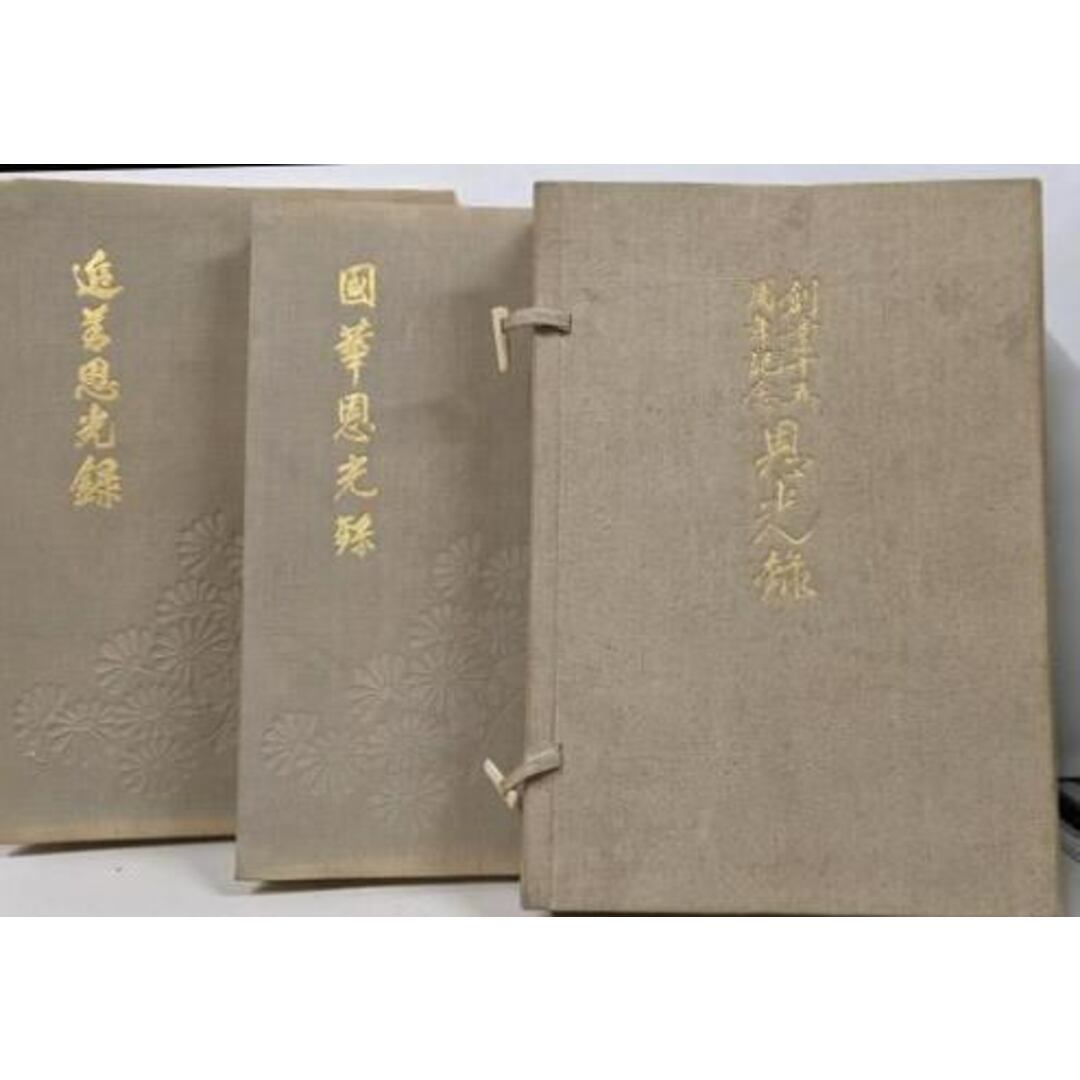 追善恩光録
國華恩光録
創業十五
周年記念
恩光録